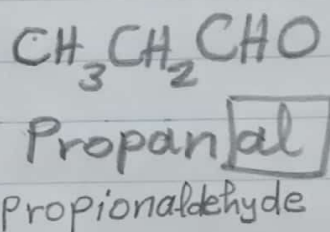 CH₃CH₂CHO
Propanal
Propionaldehyde